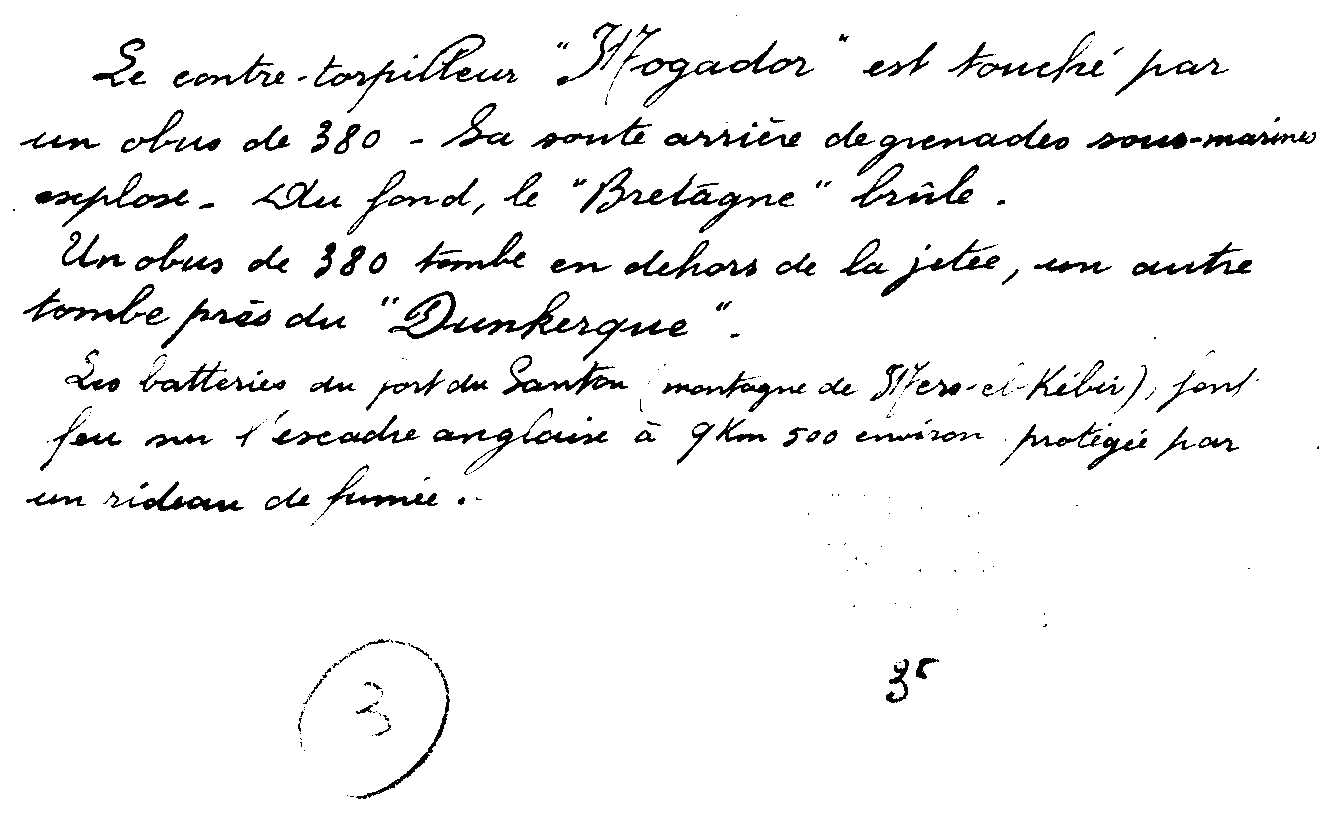 Le contre-torpilleur "Mogador" est touché par
un obus de 380 - Sa soute arrière de grenades sous-marines
explose - Au fond, le "Bretagne" brûle.
Un obus de 380 tombe en dehors de la jetée, un autre
tombe près du "Dunkerque".
Les batteries du fort du Santon (montagne de Mers-el-Kébir), font
feu sur l'escadre anglaise à 9 Km 500 environ protégée par
un rideau de fumée.
3